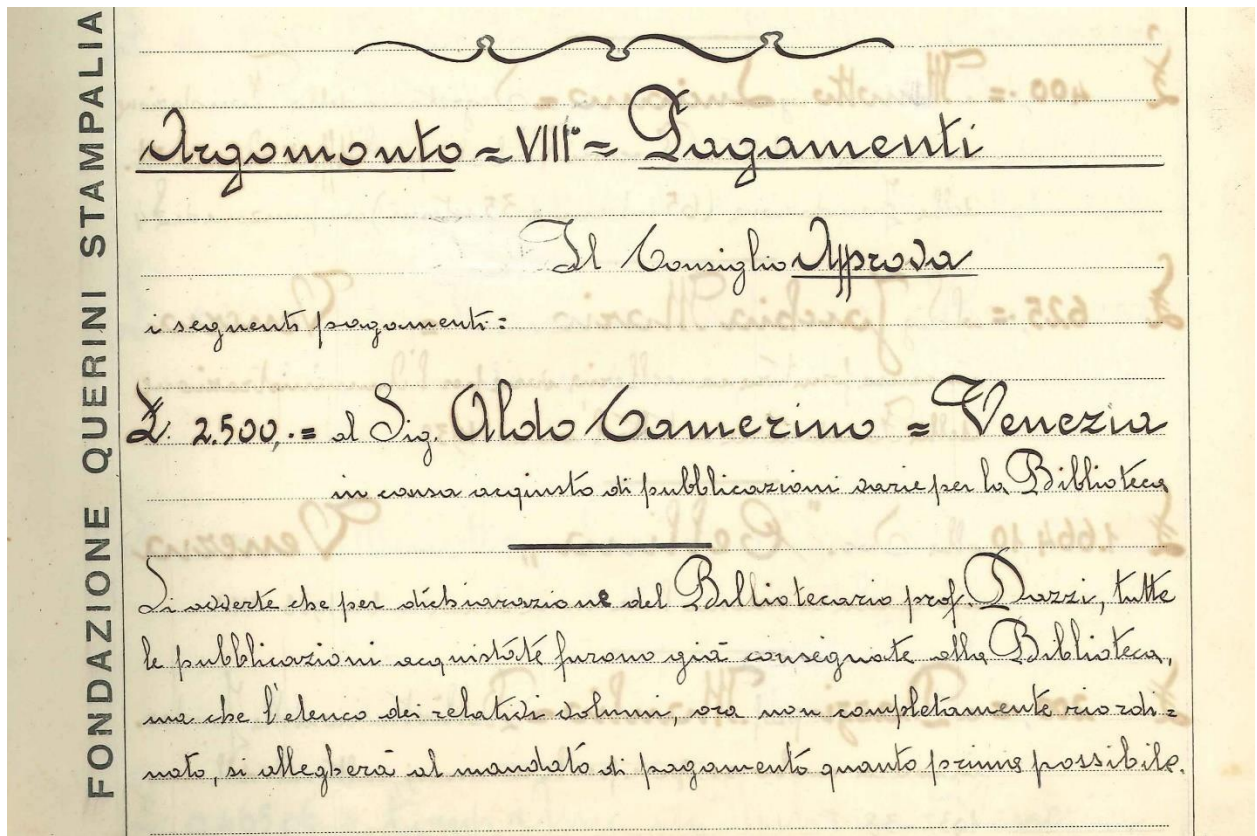 FONDAZIONE QUERINI STAMPALIA
Argomento = VIII° = Pagamenti
Il Consiglio Approva
i seguenti pagamenti:
£. 2.500,.= al Sig. Aldo Camerino = Venezia
in causa acquisto di pubblicazioni varie per la Biblioteca
Si avverte che per dichiarazione del Bibliotecario prof. Dazzi, tutte
le pubblicazioni acquistate furono già consegnate alla Biblioteca,
ma che l'elenco dei relativi volumi, ora non completamente riordi=
nato, si allegherà al mandato di pagamento quanto prima possibile.